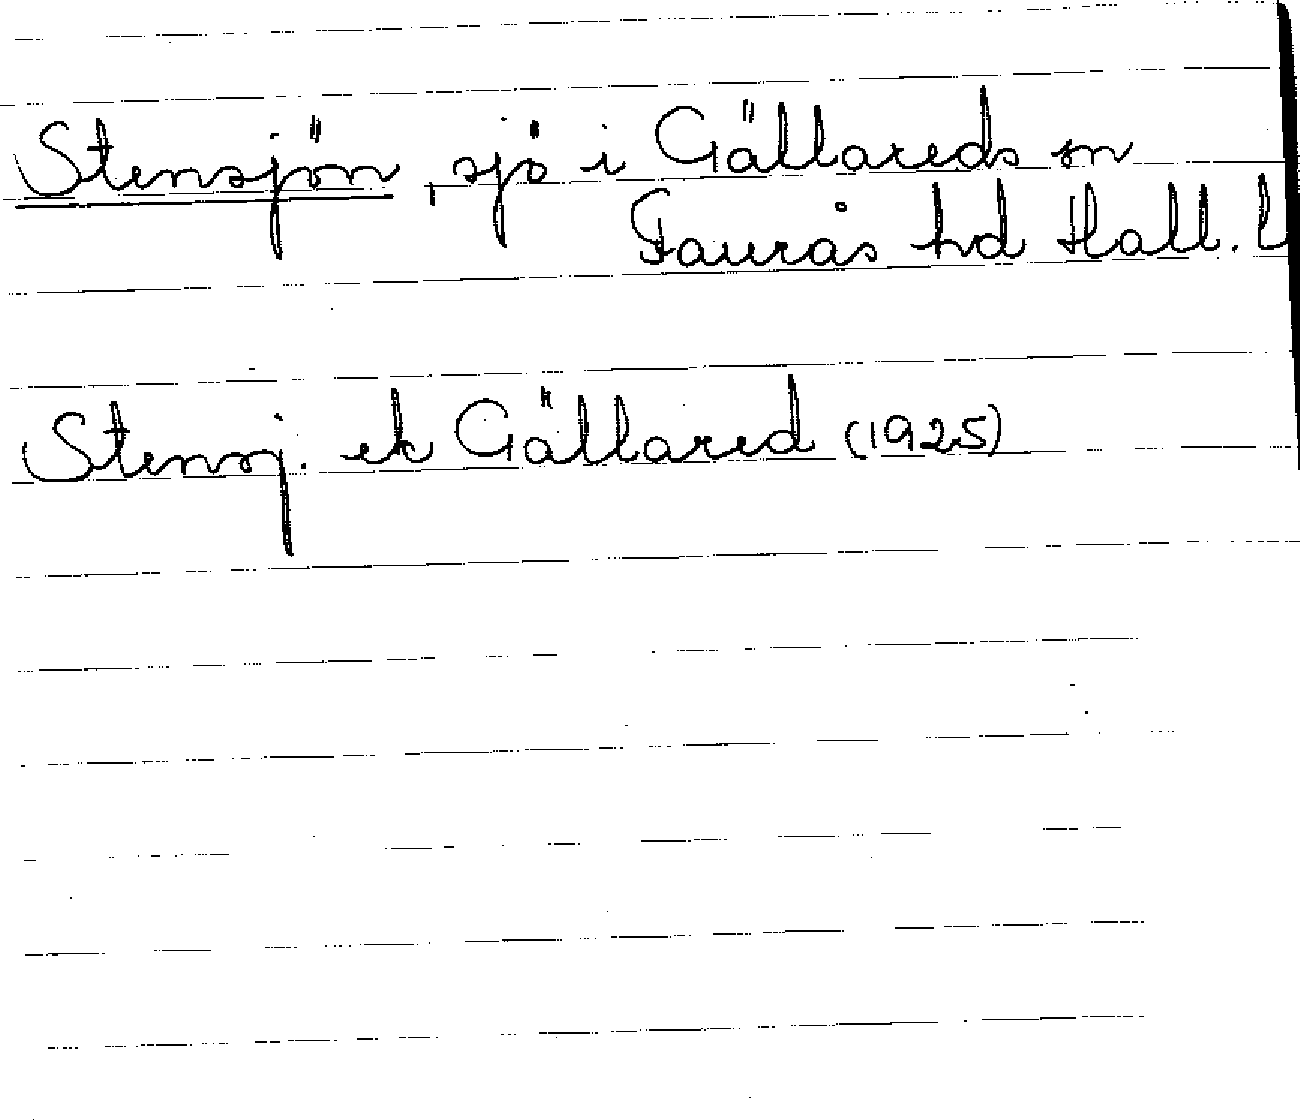 Stensjön, sjö i Gällareds sn
Faurås hd Hall. L
Stensj. ek Gällared (1925)